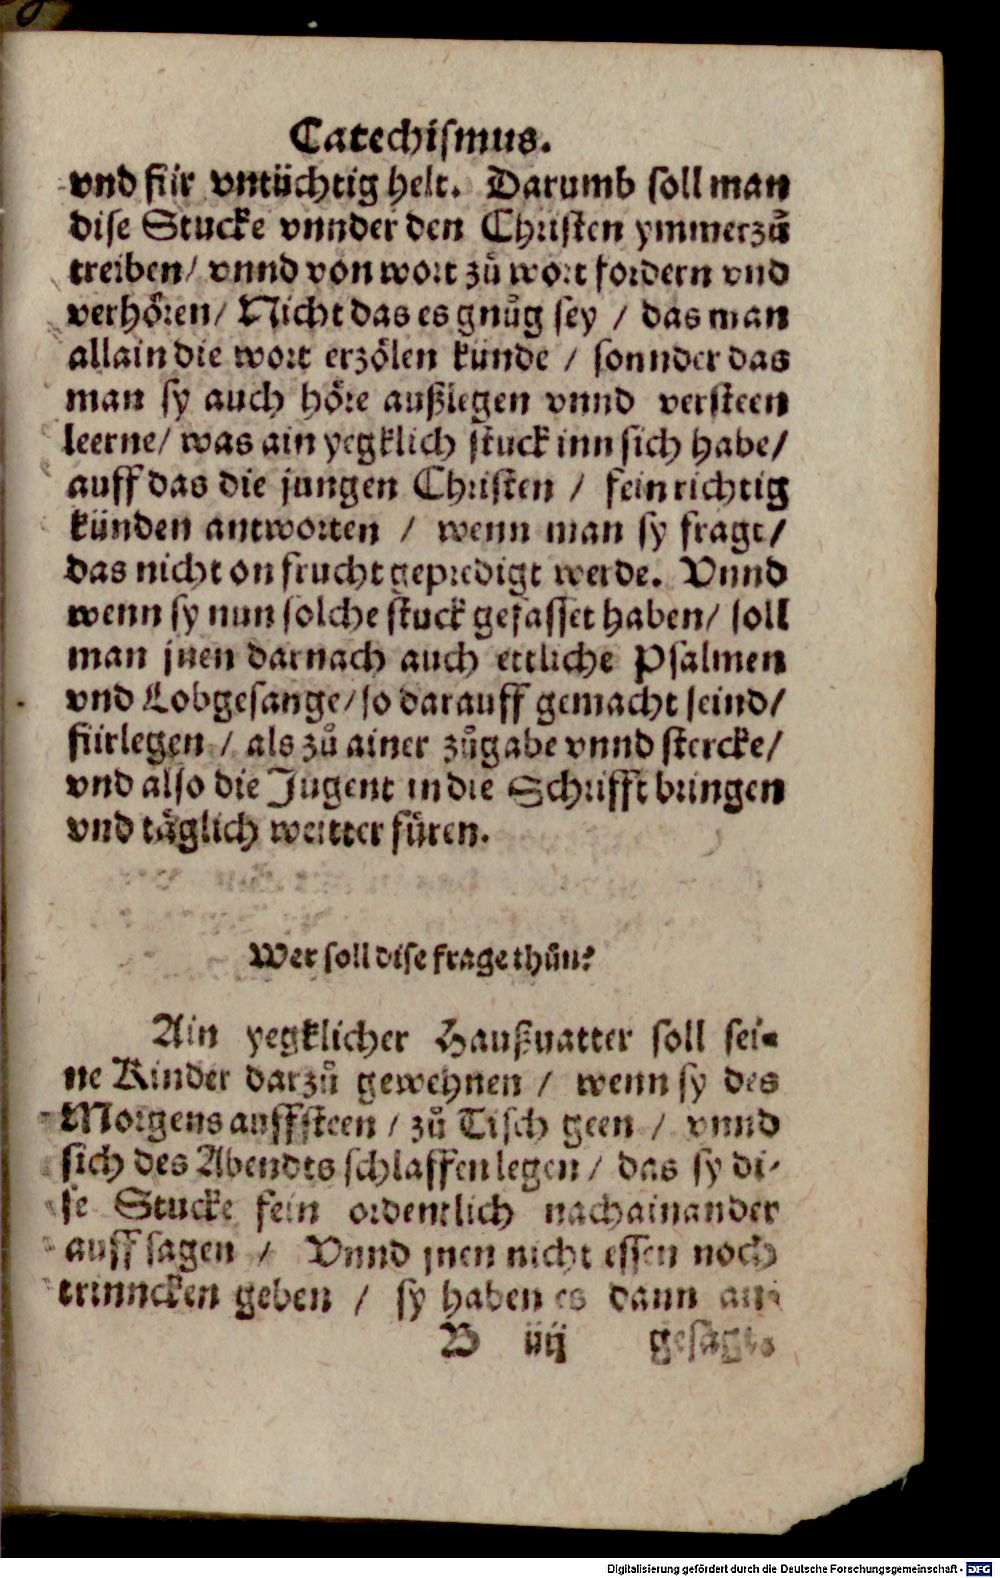 Catechismus.
vnd für vntüchtig helt. Darumb soll man
dise Stucke vnnder den Christen ymmerzů
treiben/ vnnd von wort zů wort fordern vnd
verhören/ Nicht das es gnůg sey / das man
allain die wort erzölen kunde / sonnder das
man sy auch höre außlegen vnnd versteen
leerne/ was ain yegklich stuck inn sich habe/
auff das die jungen Christen / fein richtig
künden antworten / wenn man sy fragt/
das nicht on frucht gepredigt werde. Vnnd
wenn sy nun solche stuck gefasset haben/ soll
man jnen darnach auch ettliche Psalmen
vnd Lobgesange/ so darauff gemacht seind/
fürlegen / als zů ainer zůgabe vnnd stercke/
vnd also die Jugent in die Schrifft bringen
vnd täglich weitter füren.
Wer soll dise frage thůn?
Ain yegklicher Haußuatter soll sei-
ne Kinder darzů gewehnen / wenn sy des
Morgens auffsteen / zů Tisch geen / vnnd
sich des Abendts schlaffen legen / das sy di-
se Stucke fein ordentlich nachainander
auff sagen / Vnnd jnen nicht essen noch
trinncken geben / sy haben es dann
B iiij gesagt.
Digitalisierung gefördert durch die Deutsche Forschungsgemeinschaft - DFG